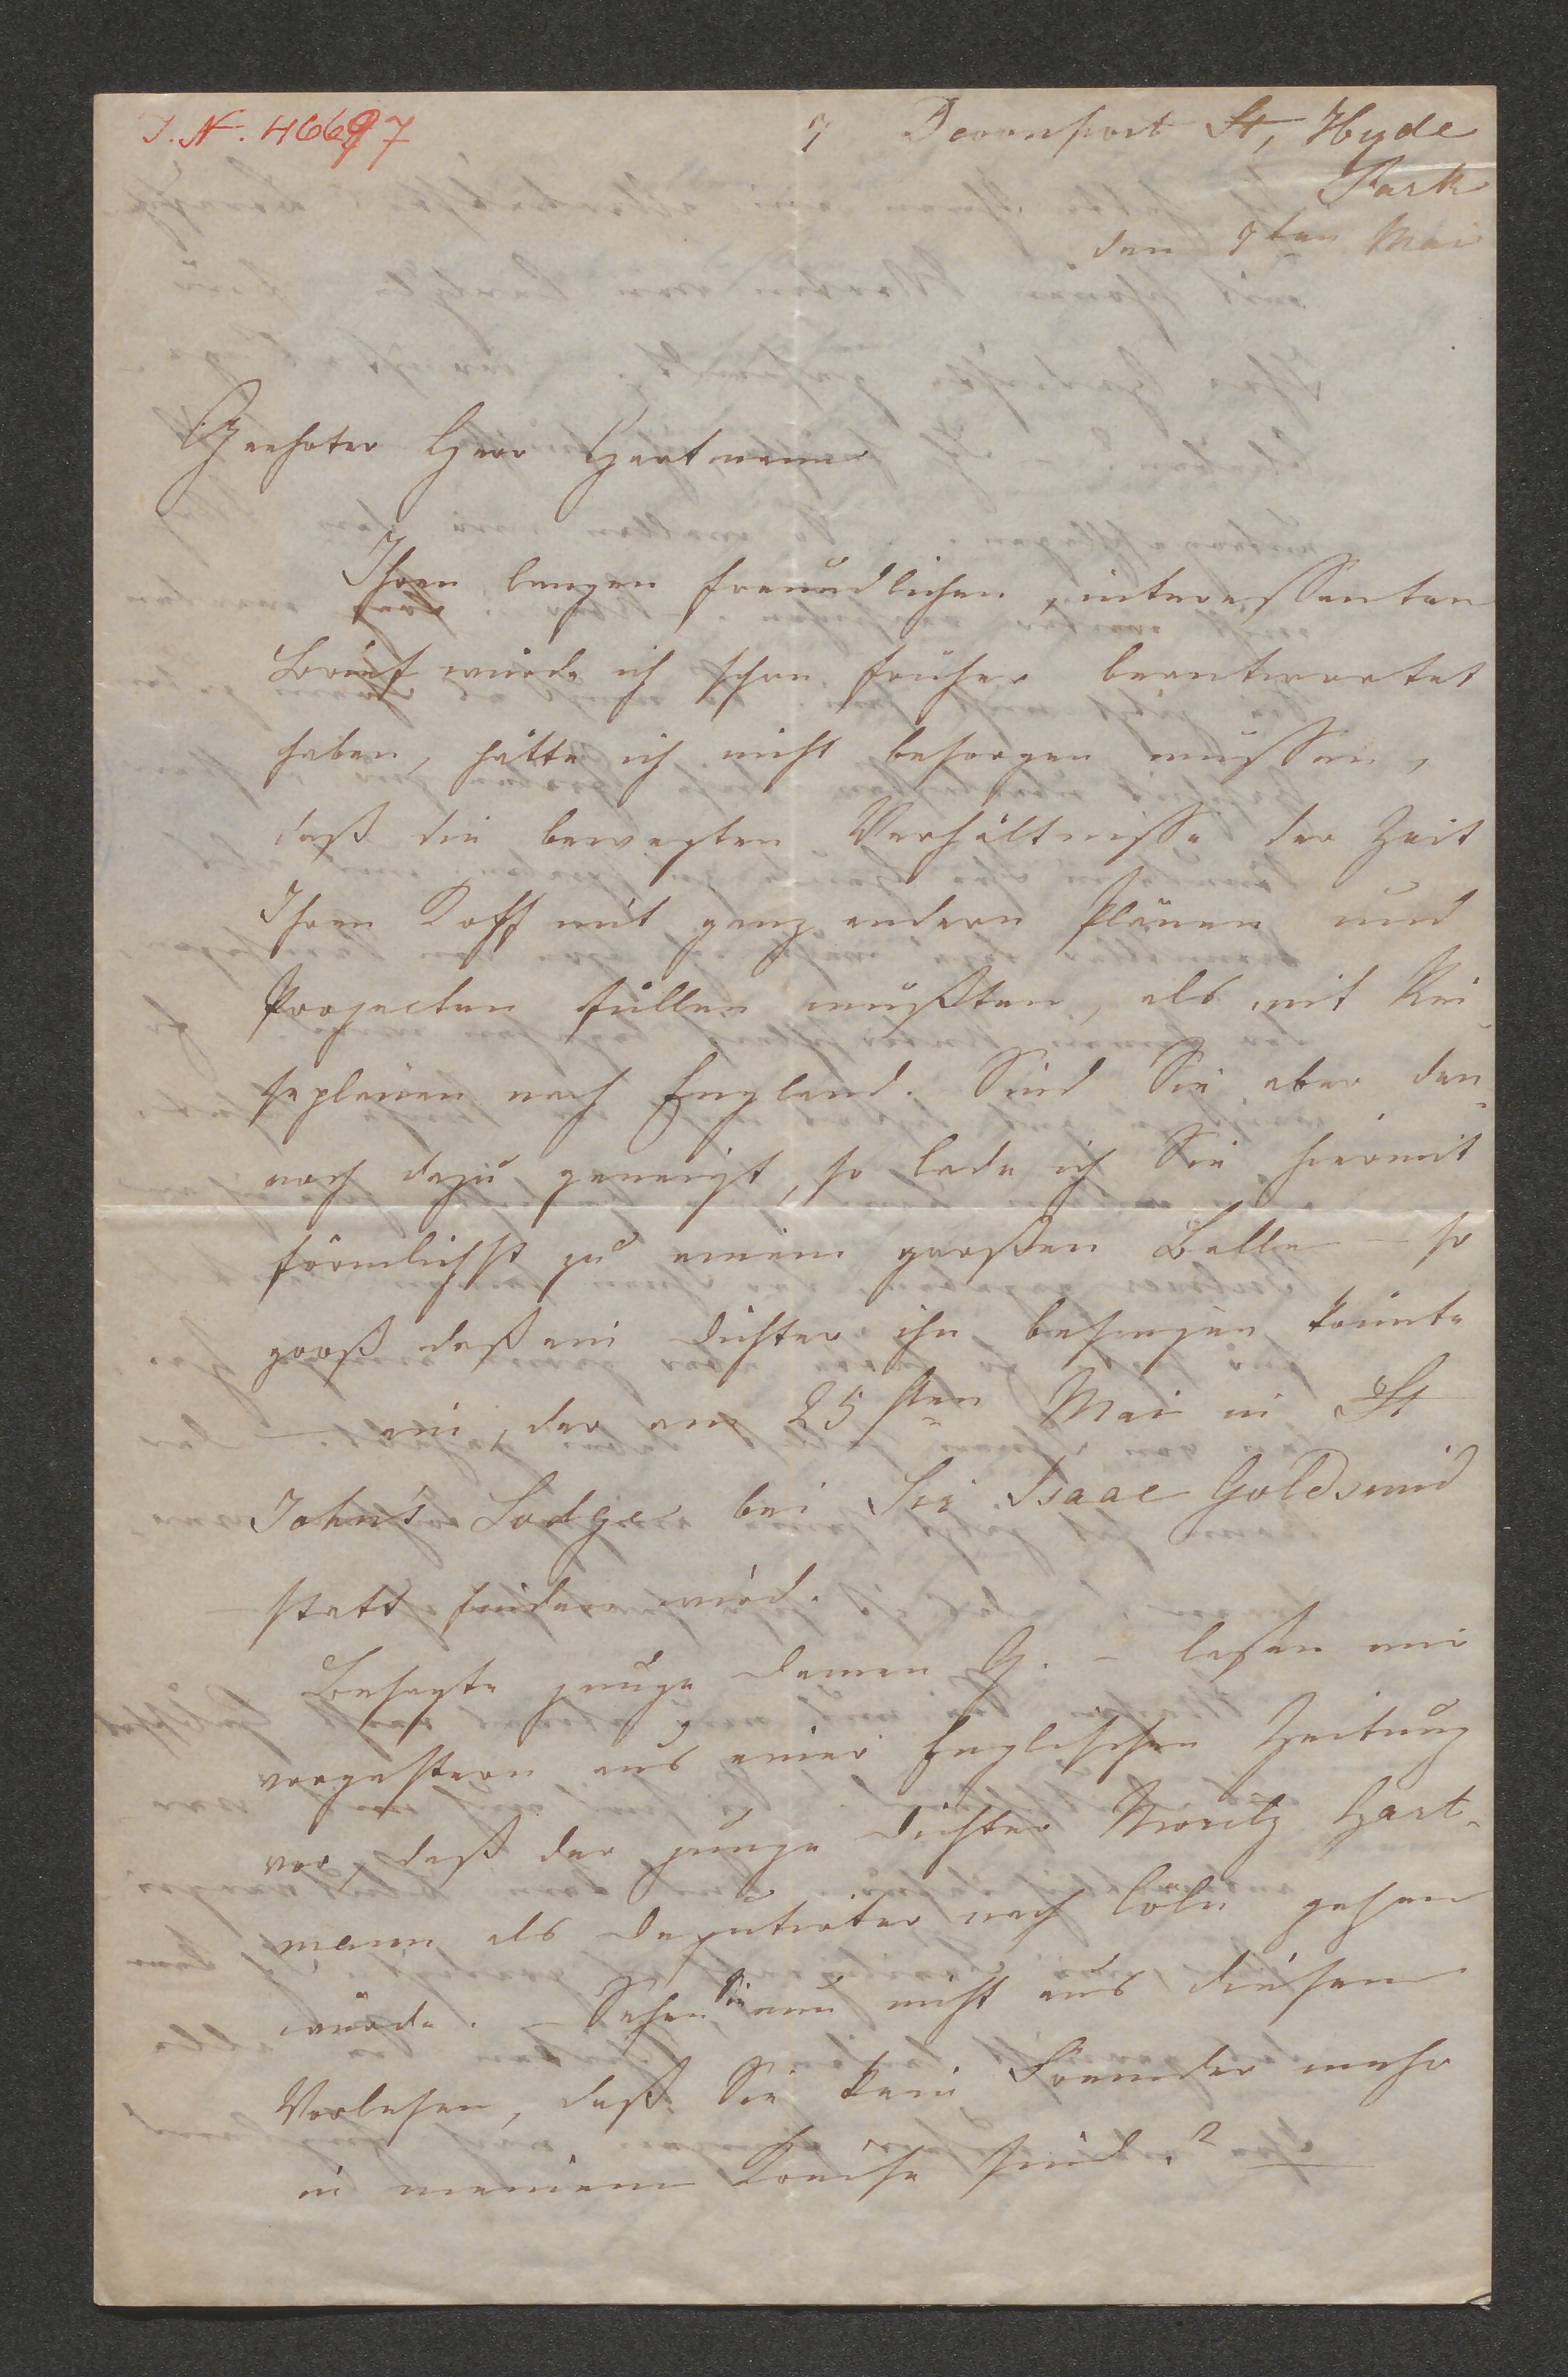 I. N. 46697
7 Devonport St, Hyde
Park
den 7ten Mai
Geehrter Herr Hartmann
Ihren langen freundlichen, interessanten
Brief würde ich schon früher beantwortet
haben, hätte ich nicht besorgen müssen,
daß die bewegten Verhältnisse der Zeit
Ihren Kopf mit ganz andern Plänen und
Projecten füllen müßten, als mit Rei-
seplänen nach England. Sind Sie aber den-
noch dazu geneigt, so lade ich Sie hiermit
förmlichst zu einem großen Balle – so
groß daß ein Dichter ihn besingen könnte
– ein, der am 25sten Mai in St
John's Lodge bei Sir Isaac Goldsmid
statt finden wird.
Besagte junge Damen G. – lasen mir
vorgestern aus einer Englischen Zeitung
vor, daß der junge Dichter Moritz Hart-
mann als Deputirter nach Cöln gehen
würde. – Sehen Sie nun nicht aus diesem
Vorlesen, daß Sie kein Fremder mehr
in meinem Kreise sind? –